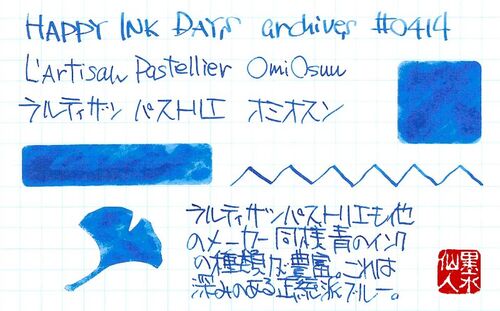 HAPPY INK DAYS archives #0414
L'Artisan Pastellier OmiOsun
ラルティザン パストリエ オミオスン
ラルティザンパストリエも他
のメーカー同様青のインク
の種類が豊富。これは
深みのある正統派ブルー。
墨水
仙人